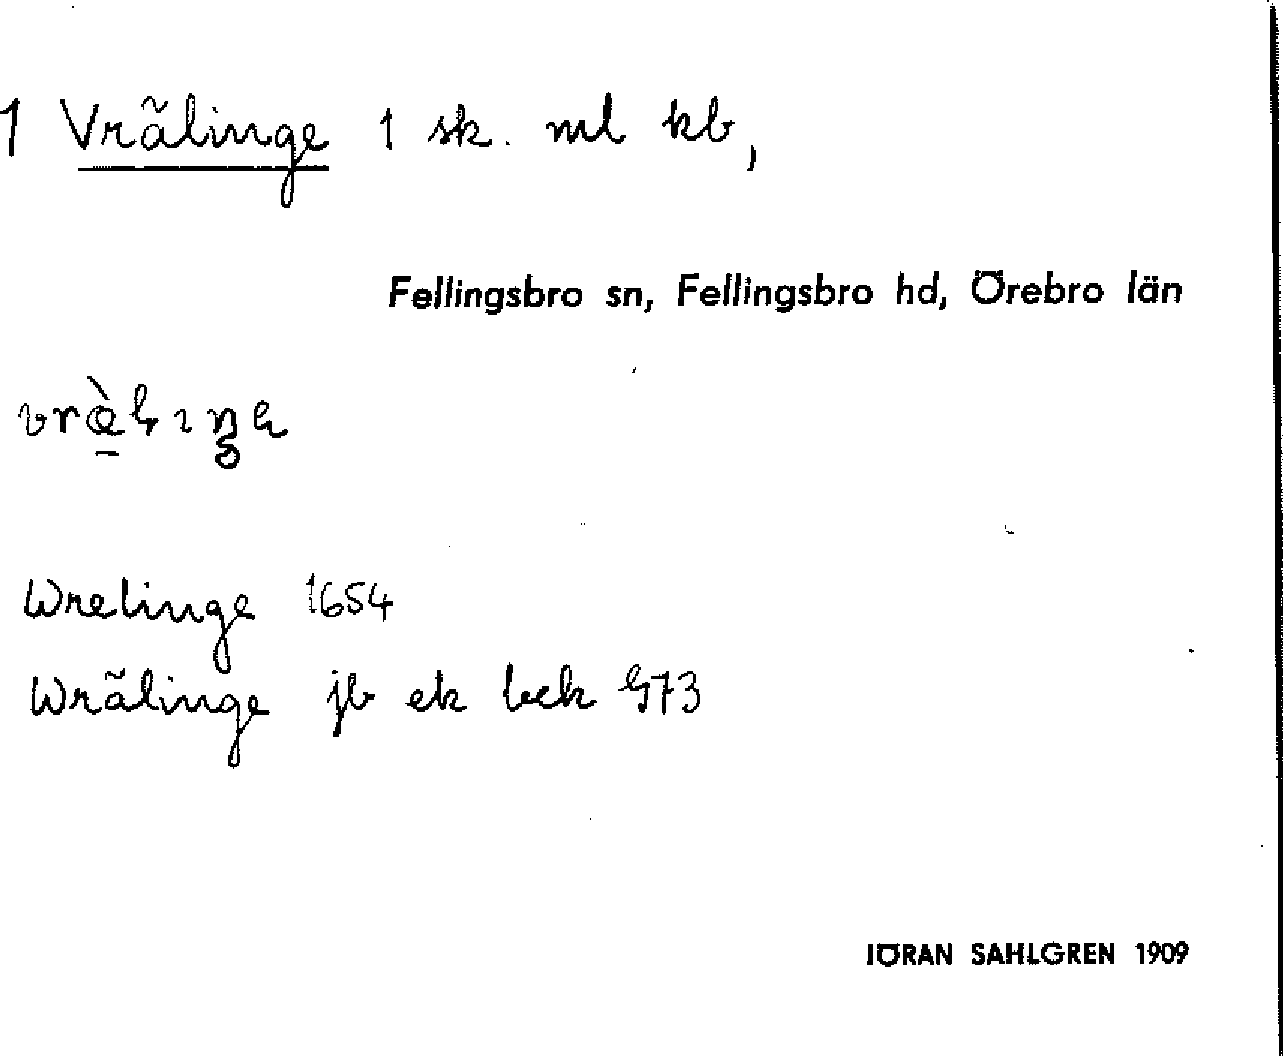 1 Vrãlinge 1 sk. ml kb,
Fellingsbro sn, Fellingsbro hd, Örebro län
Wrelinge 1654
Wrãlinge jb ek bck 973
JÖRAN SAHLGREN 1909